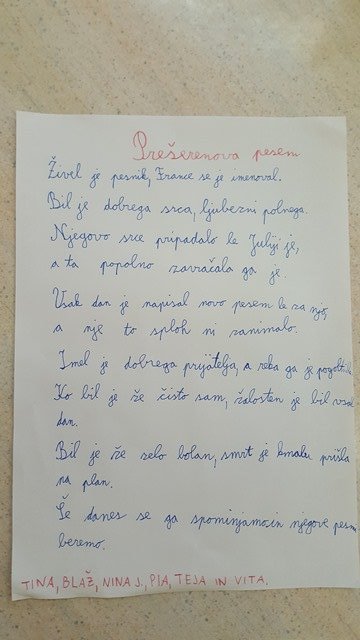 Prešerenova pesem
Živel je pesnik, France se je imenoval.
Bil je dobrega srca, ljubezni polnega.
Njegovo srce pripadalo le Juliji je,
a ta popolno zavračala ga je.
Vsak dan je napisal novo pesem le za njo,
a nje to sploh ni zanimalo.
Imel je dobrega prijatelja, a reka ga je
Ko bil je že čisto sam, žalosten je bil vsak
dan.
Bil je že zelo bolan, smrt je kmalu prišla
na plan.
Še danes se ga spominjamo in njegove
beremo.
TINA, BLAŽ, NINA J., PIA, TEJA IN VITA.